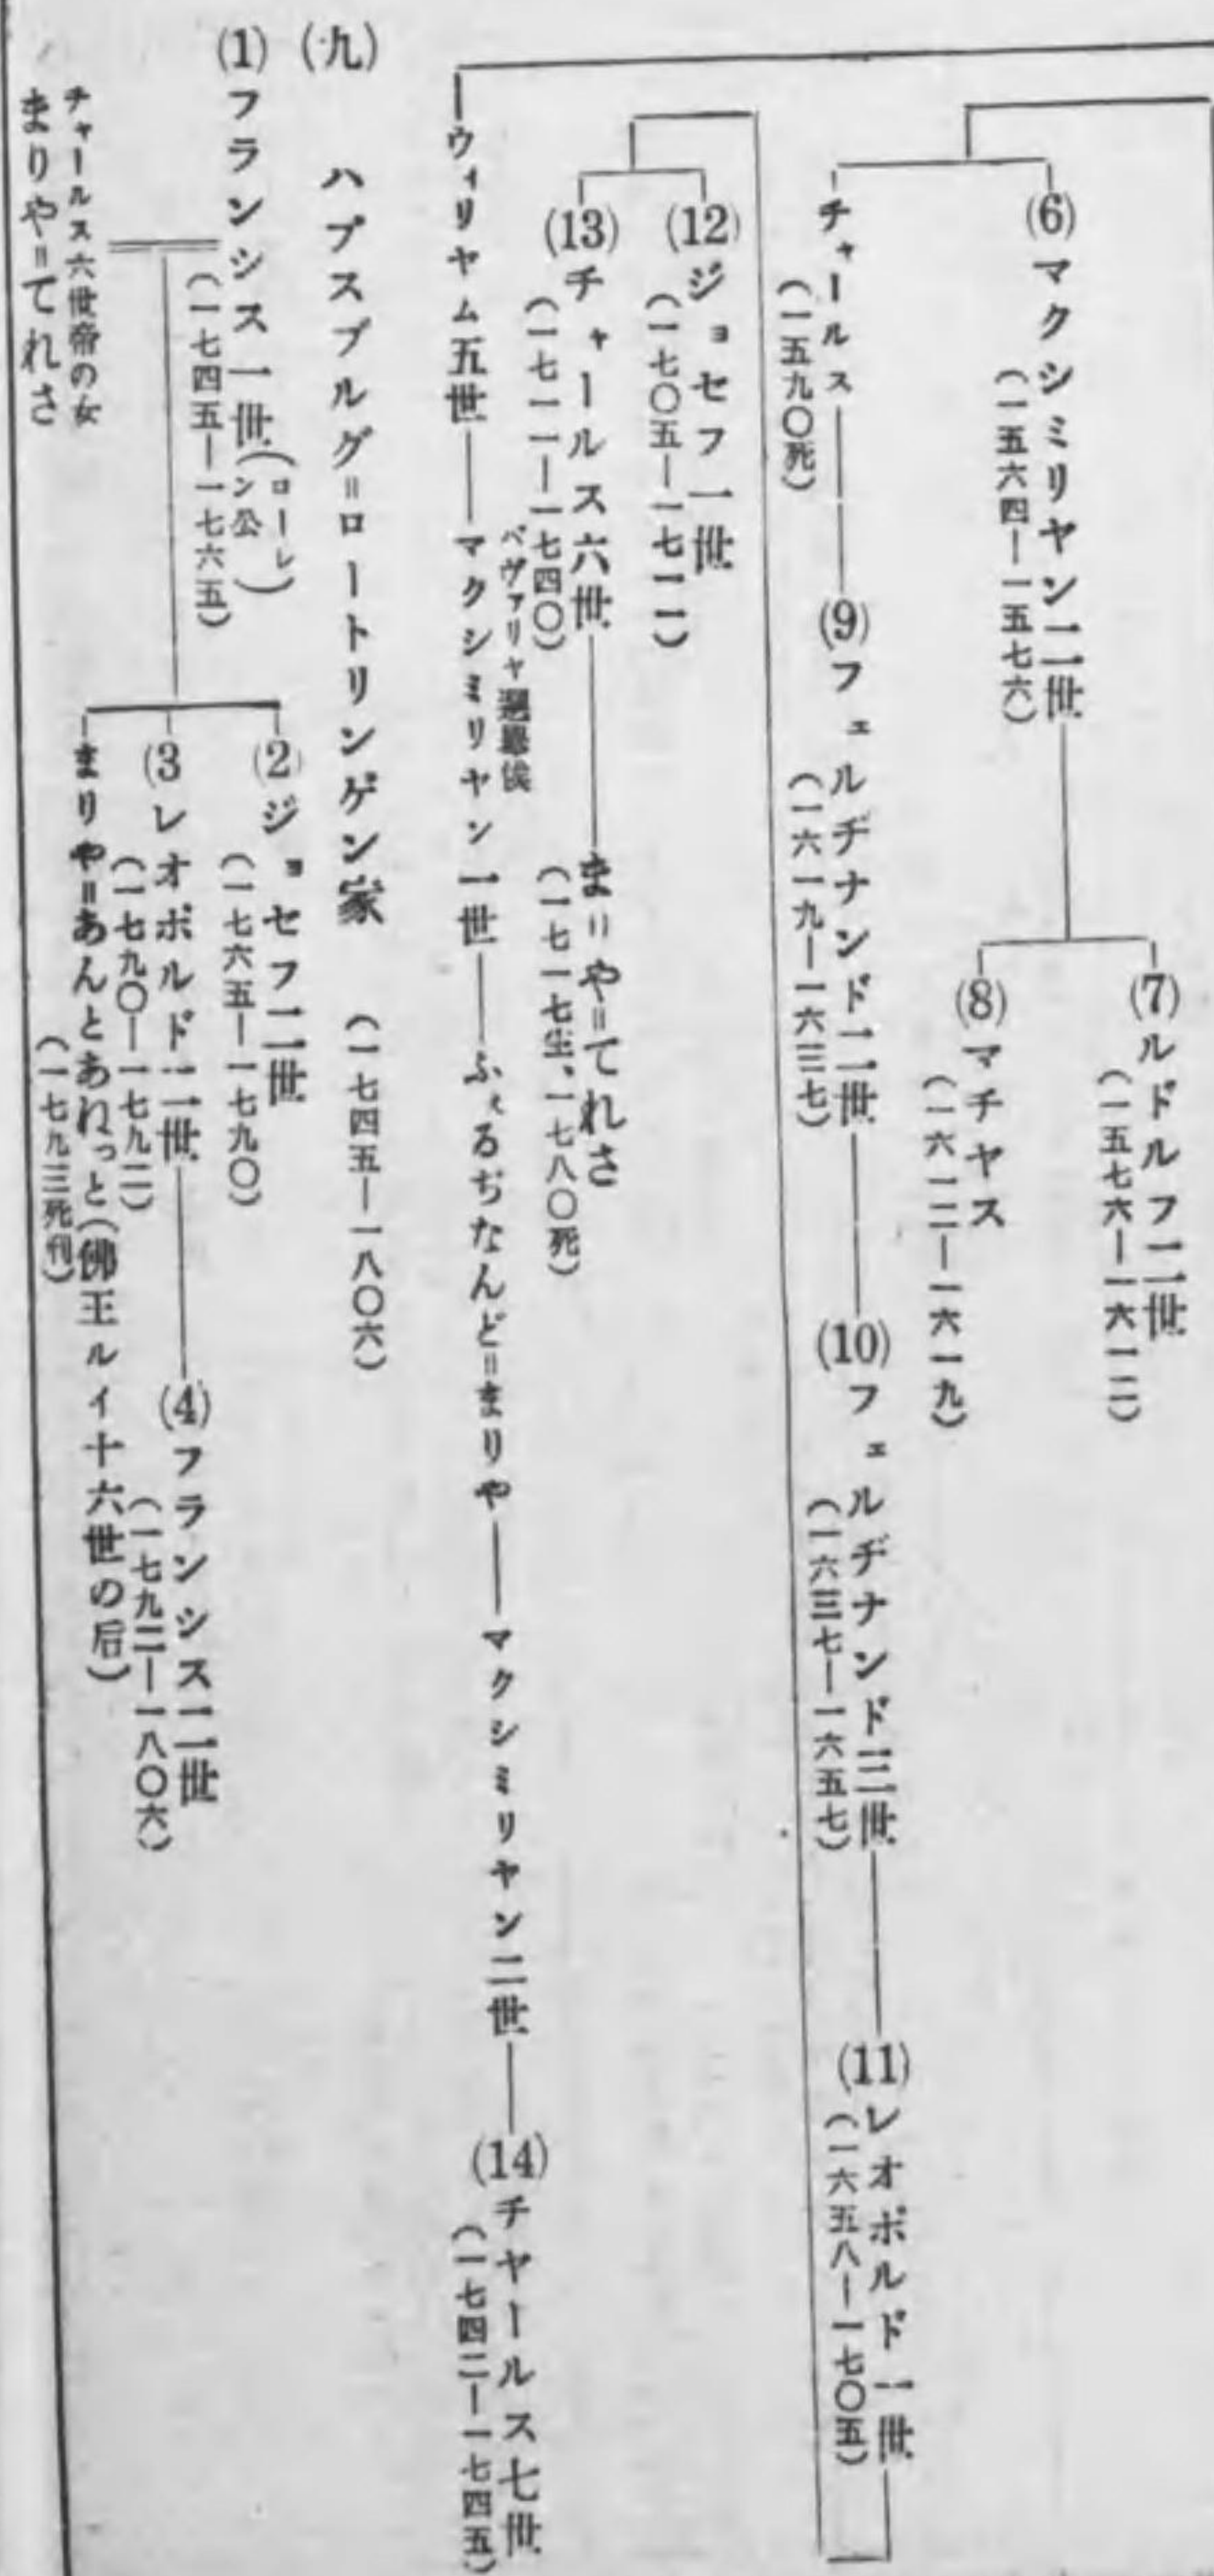 (6)マクシミリヤン二世
(一五六四—一五七六)
(7)ルドルフ二世
(一五七六—一六一二)
(8)マチヤス
(一六一二—一六一九)
チャールス
(一五九〇死)
(9)フェルヂナンド二世
(一六一九—一六三七)
(10)フェルヂナンド三世
(一六三七—一六五七)
(11)レオポルド一世
(一六五八—一七〇五)
(12)ジョセフ一世
(一七〇五—一七一一)
(13)チャールス六世
(一七一一—一七四〇)
まりや=てれさ
(一七一七生、一七八〇死)
ウィリヤム五世
バヴァリヤ選擧侯
マクシミリヤン一世
ふぇるぢなんど=まりや
マクシミリヤン二世
(14)チヤールス七世
(一七四二—一七四五)
(九) ハプスブルグ=ロートリンゲン家 (一七四五—一八〇六)
(1)フランシス一世(ローレン公)
(一七四五—一七六五)
チャールス六世帝の女
まりや=てれさ
(2)ジョセフ二世
(一七六五—一七九〇)
(3)レオポルド二世
(一七九〇—一七九二)
(4)フランシス二世
(一七九二—一八〇六)
まりや=あんとあねっと(佛王ルイ十六世の后)
(一七九三死刑)